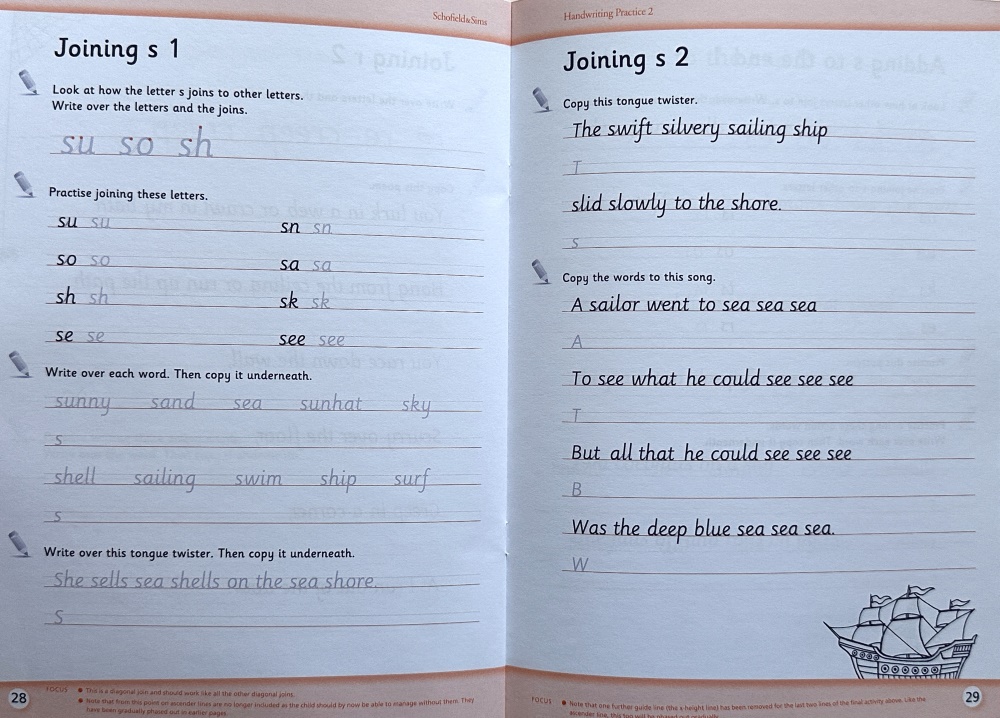 Schofield&Sims
Joining s 1
Look at how the letter s joins to other letters.
Write over the letters and the joins.
su so sh
Practise joining these letters.
su su sn sn
so so sa sa
sh sh sk sk
se se see see
Write over each word. Then copy it underneath.
sunny sand sea sunhat sky
s
shell sailing swim ship surf
s
Write over this tongue twister. Then copy it underneath.
She sells sea shells on the sea shore.
S
28
FOCUS
● This is a diagonal join and should work like all the other diagonal joins.
● Note that from this point on ascender lines are no longer included as the child should by now be able to manage without them. They
have been gradually phased out in earlier pages.
Handwriting Practice 2
Joining s 2
Copy this tongue twister.
The swift silvery sailing ship
T
slid slowly to the shore.
s
Copy the words to this song.
A sailor went to sea sea sea
A
To see what he could see see see
T
But all that he could see see see
B
Was the deep blue sea sea sea.
W
FOCUS
● Note that one further guide line (the x-height line) has been removed for the last two lines of the final activity above. Like the
ascender line, this too will be phased out gradually.
29